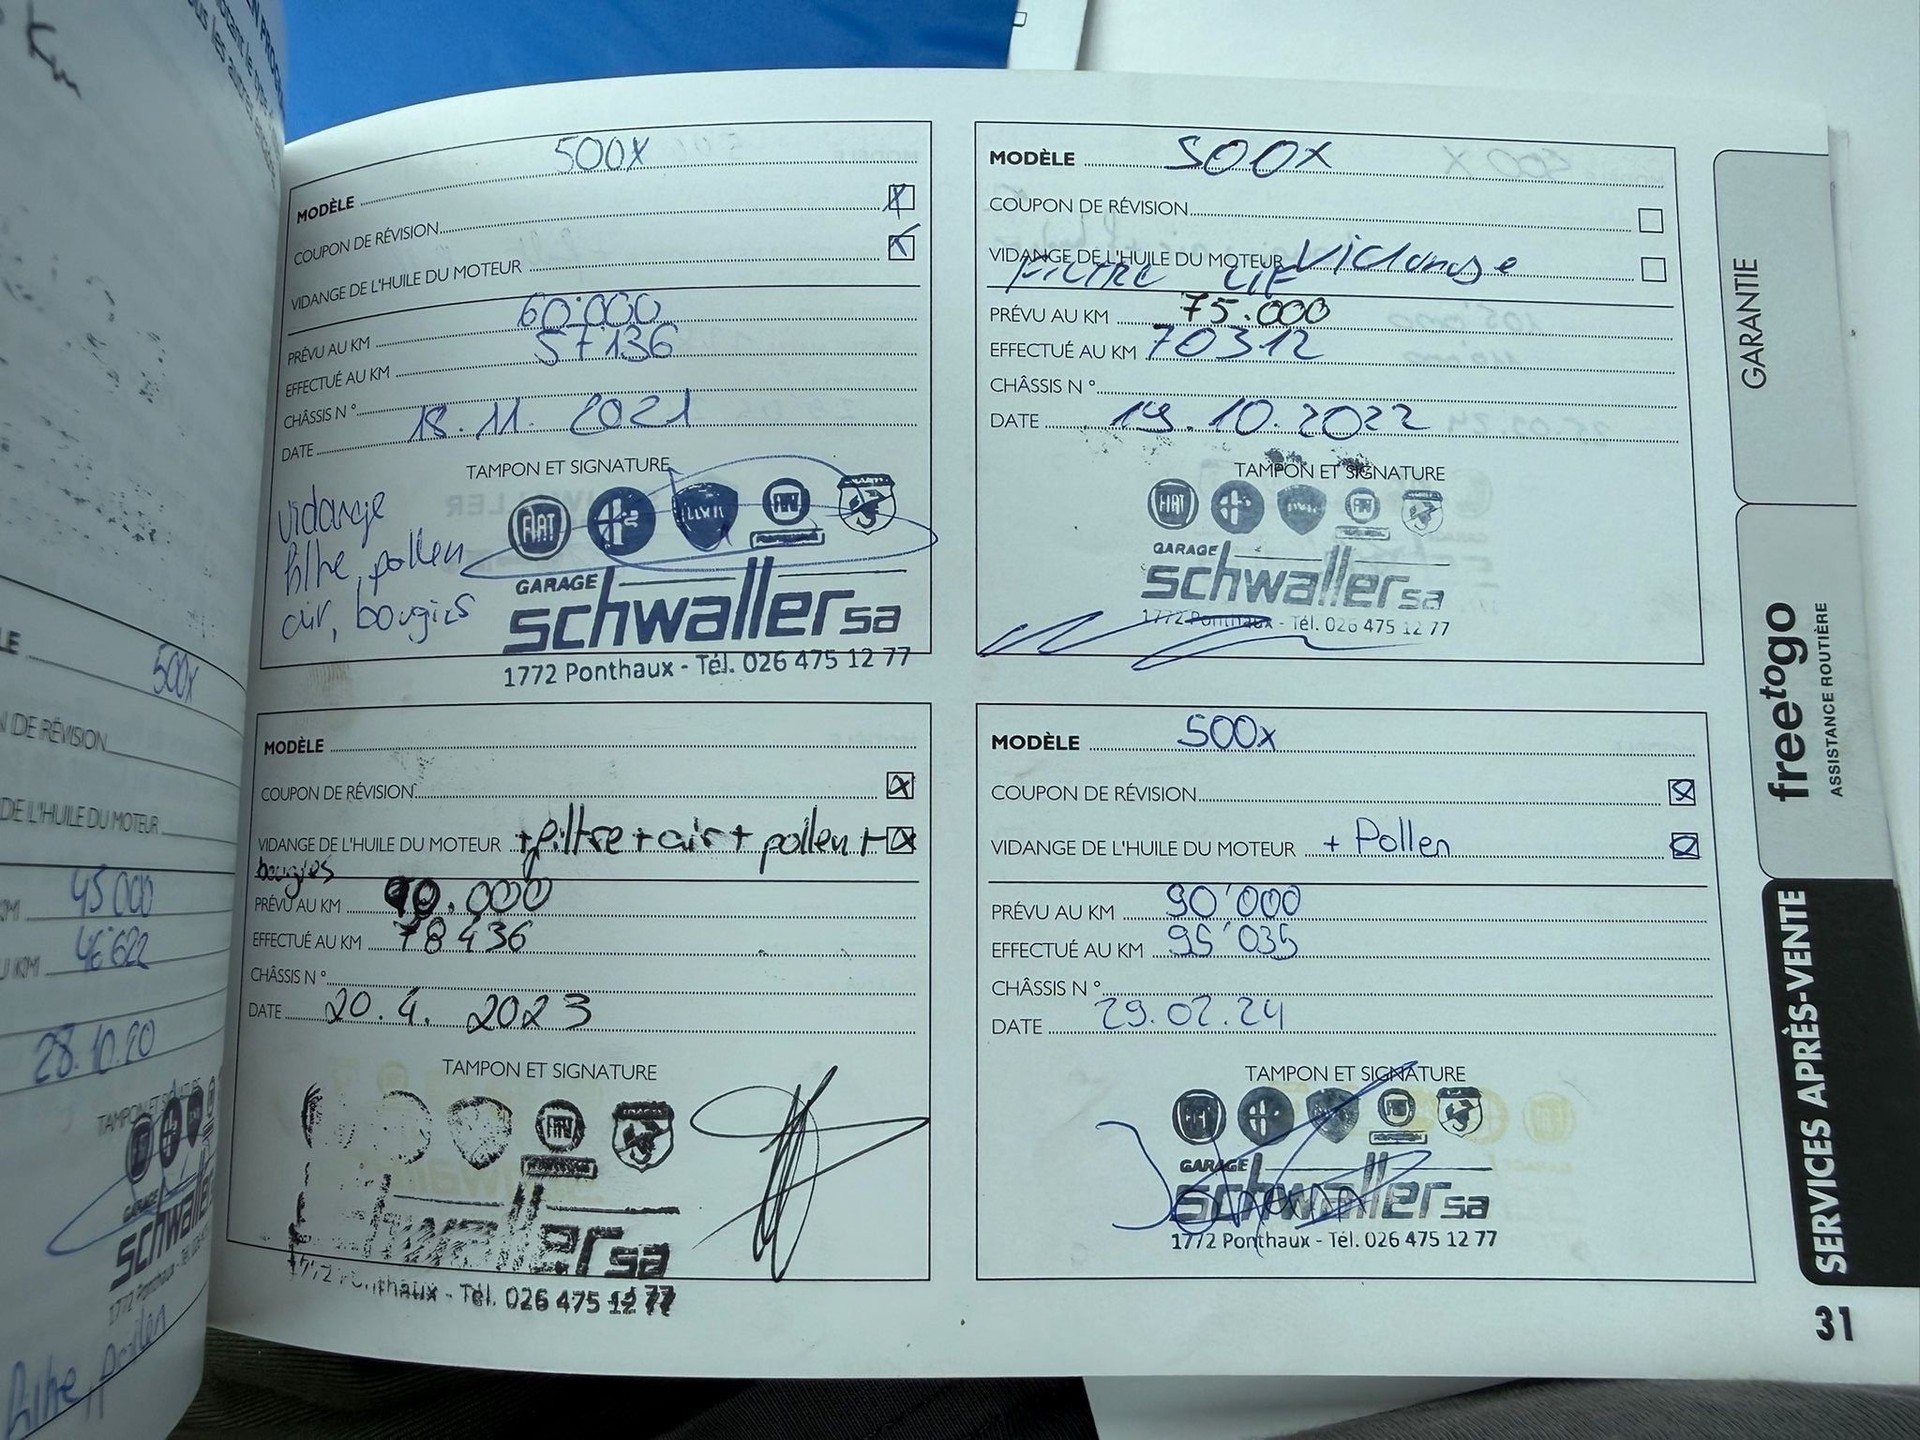 Km
500x
DE RÉVISION
DE L'HUILE DU MOTEUR
45 000
46'622
28.10.20
TAMPON ET SIGNATURE
GARAGE
schwaller
1772 Ponthaux
filtre pollen
500X
MODÈLE
COUPON DE RÉVISION
VIDANGE DE L'HUILE DU MOTEUR
60'000
PRÉVU AU KM
57'136
EFFECTUÉ AU KM
CHÂSSIS N °
18.11.2021
DATE
TAMPON ET SIGNATURE
vidange
filtre, pollen
air, bougies
FIAT
GARAGE
schwaller sa
1772 Ponthaux - Tél. 026 475 12 77
MODÈLE 500X
COUPON DE RÉVISION
VIDANGE DE L'HUILE DU MOTEUR Vidange
FILTRE
PRÉVU AU KM 75.000
EFFECTUÉ AU KM 70312
CHÂSSIS N °
DATE 19.10.2022
TAMPON ET SIGNATURE
FIAT
GARAGE
schwaller sa
1772 Ponthaux - Tél. 026 475 12 77
MODÈLE
COUPON DE RÉVISION
VIDANGE DE L'HUILE DU MOTEUR +filtre+air+pollen+
bougies
PRÉVU AU KM 90.000
EFFECTUÉ AU KM 78436
CHÂSSIS N °
DATE 20.4.2023
TAMPON ET SIGNATURE
schwaller sa
1772 Ponthaux - Tél. 026 475 12 77
MODÈLE 500x
COUPON DE RÉVISION
VIDANGE DE L'HUILE DU MOTEUR + Pollen
PRÉVU AU KM 90'000
EFFECTUÉ AU KM 95'035
CHÂSSIS N °
DATE 29.02.24
TAMPON ET SIGNATURE
GARAGE
schwaller sa
1772 Ponthaux - Tél. 026 475 12 77
GARANTIE
freetogo
ASSISTANCE ROUTIÈRE
SERVICES APRÈS-VENTE
31